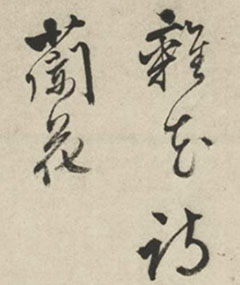 雜花詩
蘭花